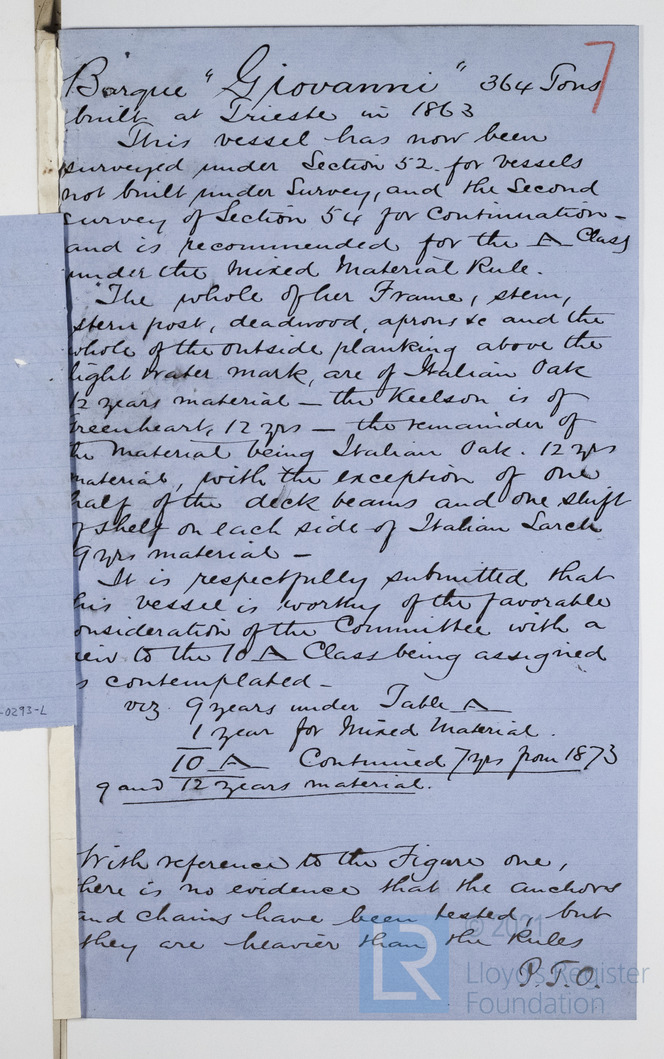 7
Barque "Giovanni" 364 Tons
built at Trieste in 1863
This vessel has now been
surveyed under Section 52 for vessels
not built under Survey, and the Second
survey of Section 54 for Continuation -
and is recommended for the A Class
under the Mixed Material Rule.
The whole of her Frame, stem,
stern post, deadwood, aprons &c and the
whole of the outside planking above the
light water mark, are of Italian Oak
12 years material - the Keelson is of
Greenheart, 12 yrs - the remainder of
the material being Italian Oak. 12 yrs
material, with the exception of one
half of the deck beams and one shift
of shelf on each side of Italian Larch
9 yrs material -
It is respectfully submitted that
this vessel is worthy of the favorable
consideration of the Committee with a
view to the 10 A Class being assigned
as contemplated -
viz. 9 years under Table A
1 year for Mixed Material.
10 A Continued 7 yrs from 1873
9 and 12 years material.
With reference to the Figure one,
there is no evidence that the anchors
and chains have been tested, but
they are heavier than the Rules
P.T.O.
-0293-L
© 2021
LR
Lloyd's Register
Foundation